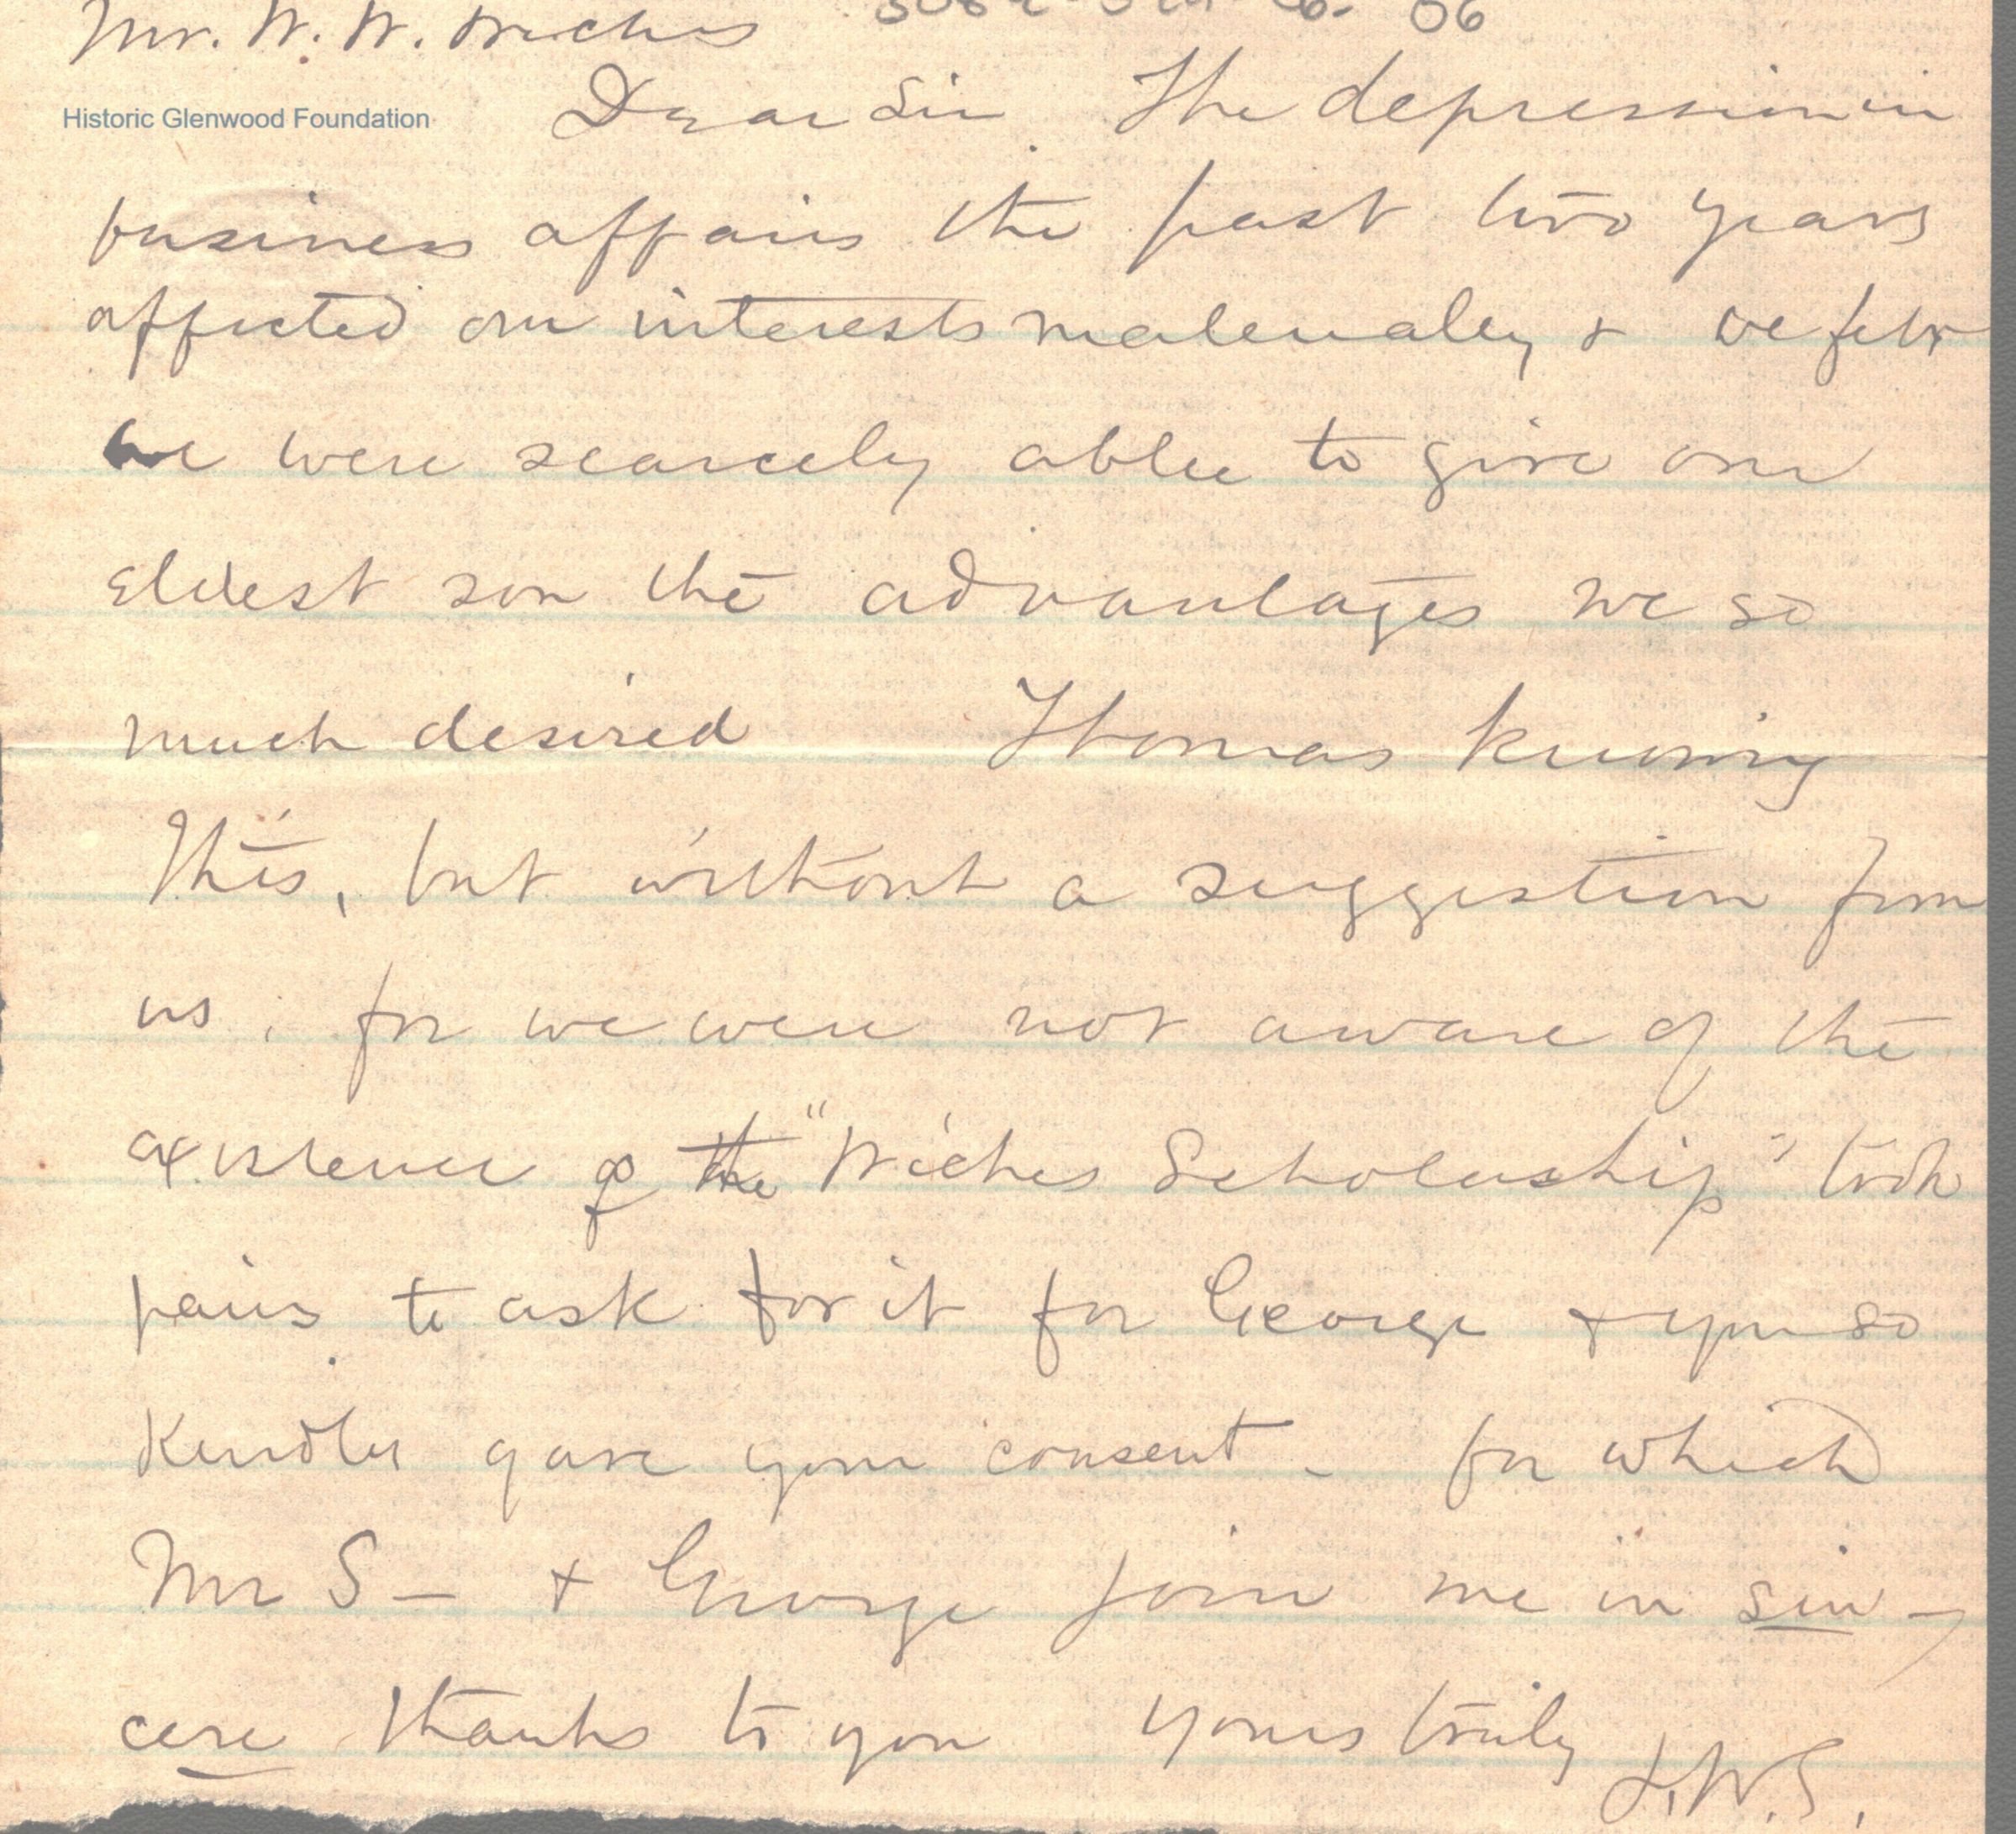 Mr. W. W. Wiches 06
Historic Glenwood Foundation
Dear Sir The depression in
business affairs the past two years
affected our interests materialey & we felt
we were scarcely able to give our
eldest son the advantages we so
much desired Thomas knowing
this, but without a suggestion from
us, for we were not aware of the
existence of the "Wiches Scholarship" took
pains to ask for it for George & you so
kindly gave your consent - for which
Mr S- & George join me in sin-
cere thanks to you yours truly L.W.S.